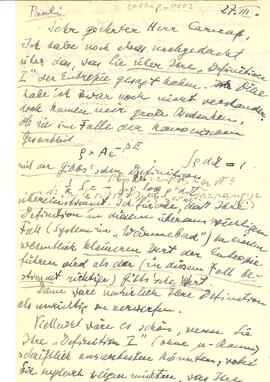 Pauli
27. III.
Sehr geehrter Herr Carnap,
Ich habe noch etwas nachgedacht
über das, was Sie über Ihre „Definition
I“ der Entropie gesagt haben. Ihre
habe ich zwar noch nicht verstanden,
doch kamen mir große Bedenken,
ob sie im Falle der kanonischen
Gesamtheit
ρ = Ae^-βE ∫ρ dx = 1.
mit der Gibbs'schen Definition
übereinstimmt. Ich fürchte, daß Ihre
Definition in diesem überaus wichtigen
Fall (System in „Wärmebad“) zu einem
wesentlich kleineren Wert der Entropie
führen wird als der (in diesem Fall be-
stimmt richtige) Gibbs'sche Wert.
Dann wäre natürlich Ihre Definition
als unrichtig zu verwerfen.
Vielleicht wäre es schön, wenn Sie
Ihre „Definition I“ (ohne μ-Raum)
schriftlich ausarbeiten könnten, wobei
Sie zugleich zeigen müßten, was Ihre